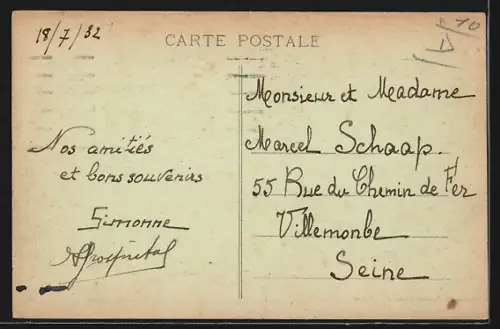 18/7/32
CARTE POSTALE
Nos amitiés
et bons souvenirs
Simonne
Monsieur et Madame
Marcel Schaap.
55 Rue du Chemin de Fer
Villemonbe
Seine